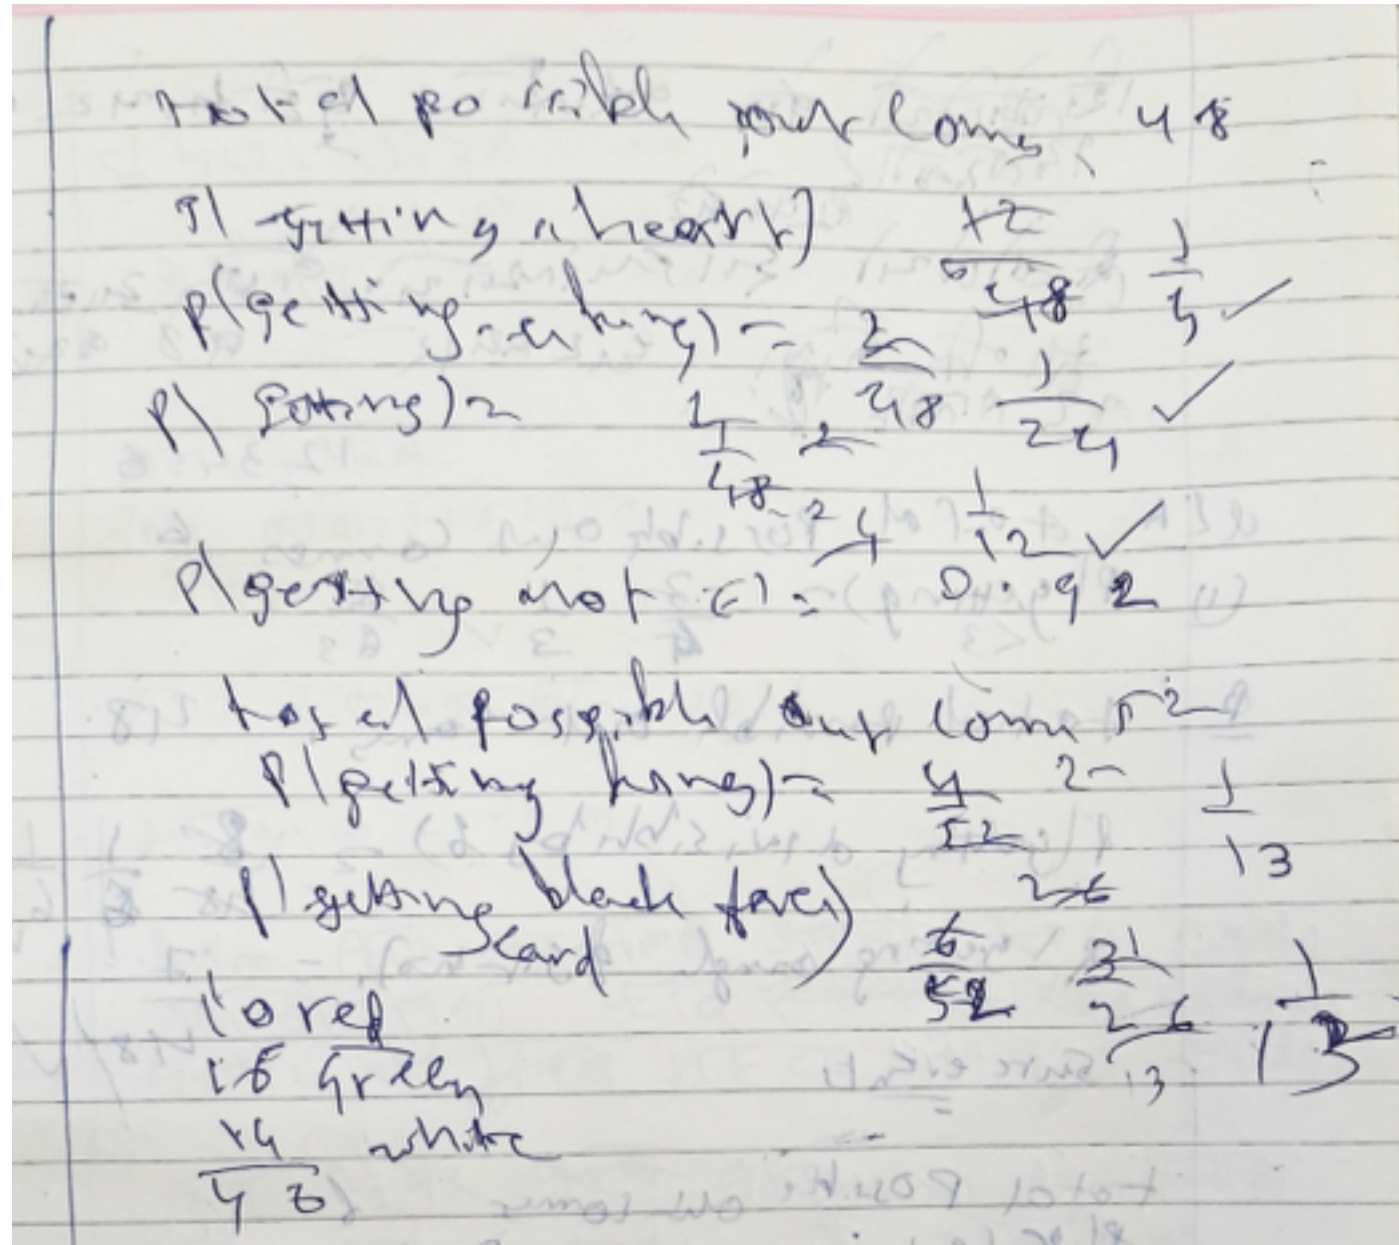 total possible outcomes 48
P(getting a heart) 12/48 1/4 ✓
P(getting a king) = 2/48 1/24 ✓
P(getting) = 4/48 = 2/24 1/12 ✓
P(getting not = 0.92
total possible out come 52
P(getting king) = 4/52 2/26 1/13
P(getting black face card) 6/52 3/26
10 red
16 green
14 white